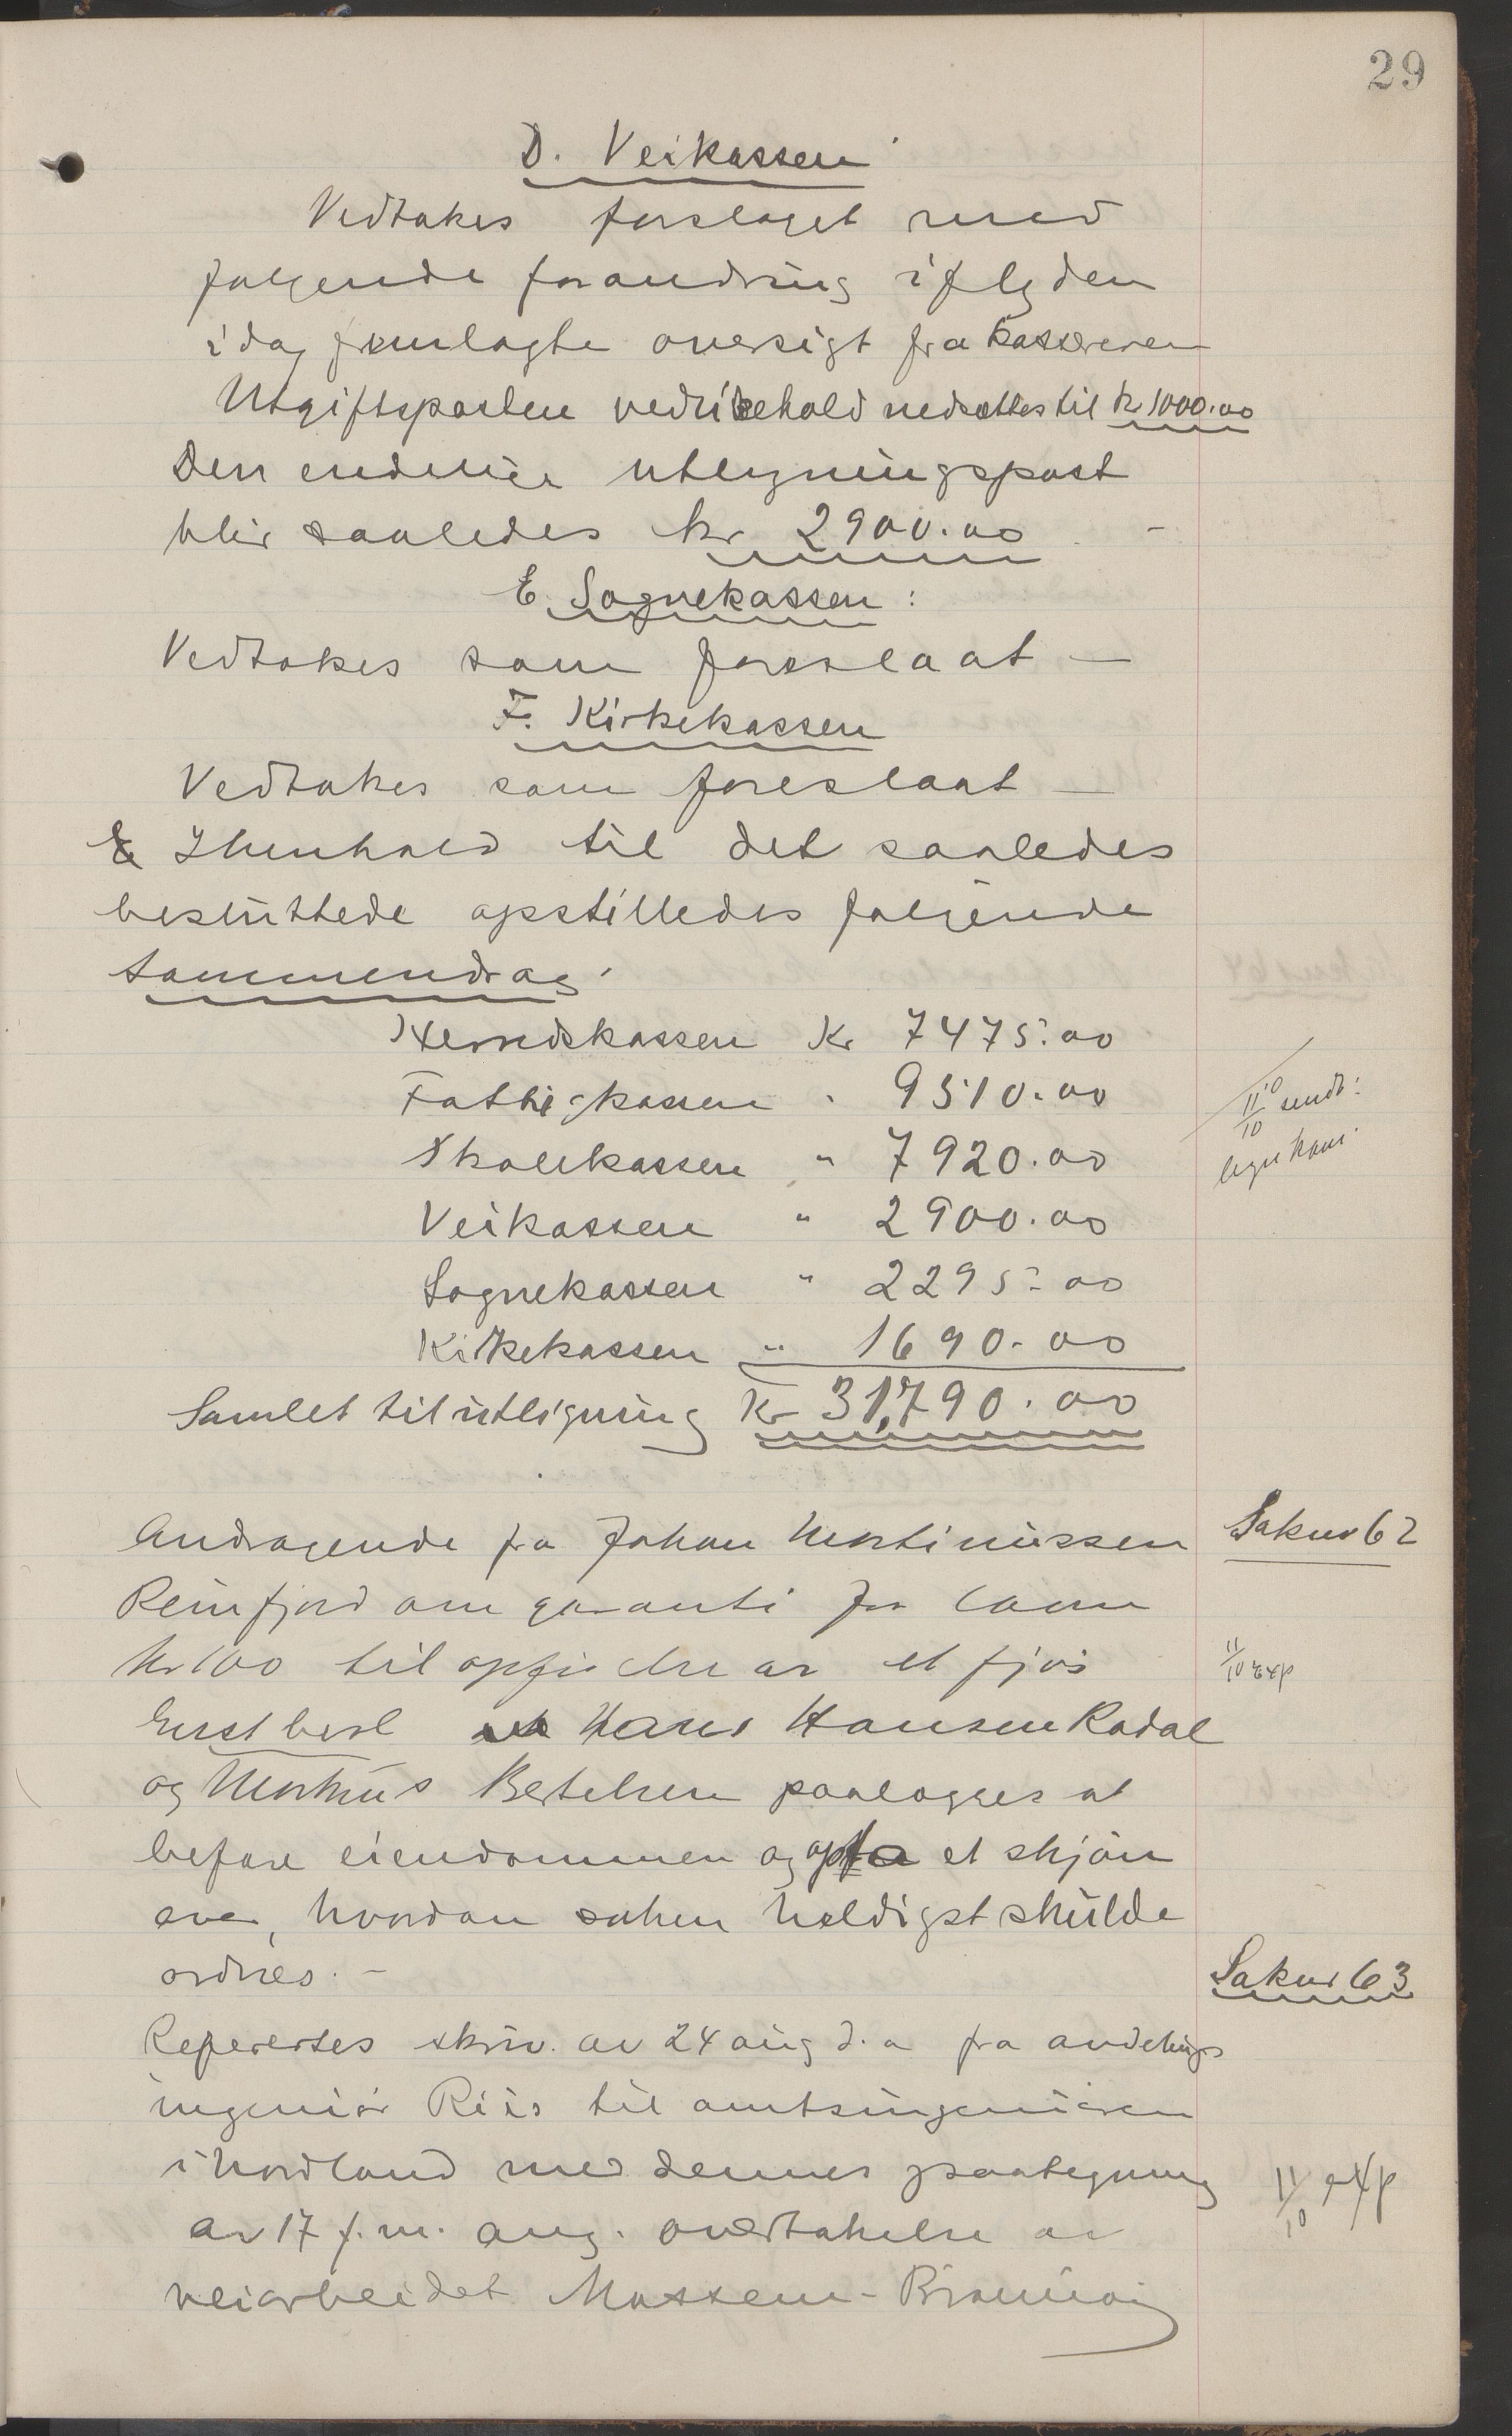 29
D. Veikassen
Vedtakes forslaget med
følgende forandring iflg den
idag fremlagte oversigt fra kassereren
Utgiftsposten vedlikehold nedsættes til kr 1000.00
Den endelige utligningspost
blir saaledes kr 2900.00 -
E. Sognekassen:
Vedtakes som foreslaat —
F. Kirkekassen
Vedtakes som foreslaat —
I henhold til det saaledes
besluttede opstilledes følgende
sammendrag:
Herredskassen Kr 7475.00
Fattigkassen " 9510.00
Skolekassen " 7920.00
Veikassen " 2900.00
Sognekassen " 2295.00
Kirkekassen " 1690.00
Samlet til utligning Kr 31,790.00
11/10 sendt:
lign kom.
Saknr 62
Andragende fra Johan Martinussen
Reinfjord om garanti for laan
kr 100 til opførelse av et fjøs
11/10 exp
Enst besl Hans Hansen Kadal
og Martinus Bertelsen paalægges at
befare eiendommen og opta et skjøn
over, hvordan saken heldigst skulde
ordnes. -
Saknr 63
Refereertes skriv. av 24 aug d.a fra avdelings
ingeniør Riis til amtsingeniøren
i Nordland med dennes paategning
11/10 exp
av 17 f.m. ang. overtakelse av
veiarbeidet Mossem -